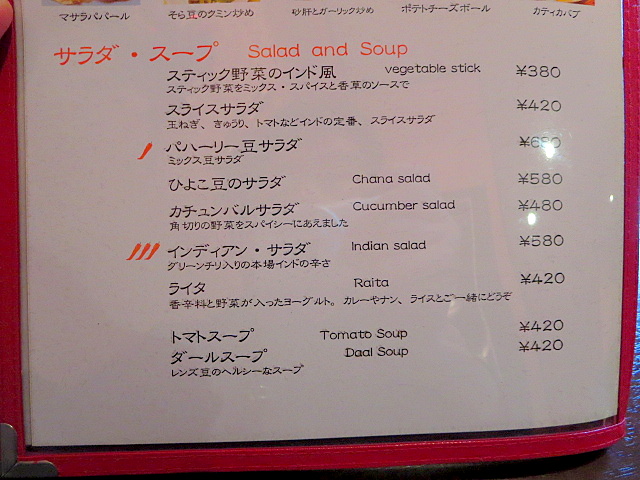 マサラパパール そら豆のクミン炒め 砂肝とガーリック炒め ポテトチーズボール カティカバブ
サラダ・スープ Salad and Soup
スティック野菜のインド風 vegetable stick ¥380
スティック野菜をミックス・スパイスと香草のソースで
スライスサラダ ¥420
玉ねぎ、きゅうり、トマトなどインドの定番、スライスサラダ
パハーリー豆サラダ ¥680
ミックス豆サラダ
ひよこ豆のサラダ Chana salad ¥580
カチュンバルサラダ Cucumber salad ¥480
角切りの野菜をスパイシーにあえました
インディアン・サラダ Indian salad ¥580
グリーンチリ入りの本場インドの辛さ
ライタ Raita ¥420
香辛料と野菜が入ったヨーグルト。カレーやナン、ライスとご一緒にどうぞ
トマトスープ Tomato Soup ¥420
ダールスープ Daal Soup ¥420
レンズ豆のヘルシーなスープ